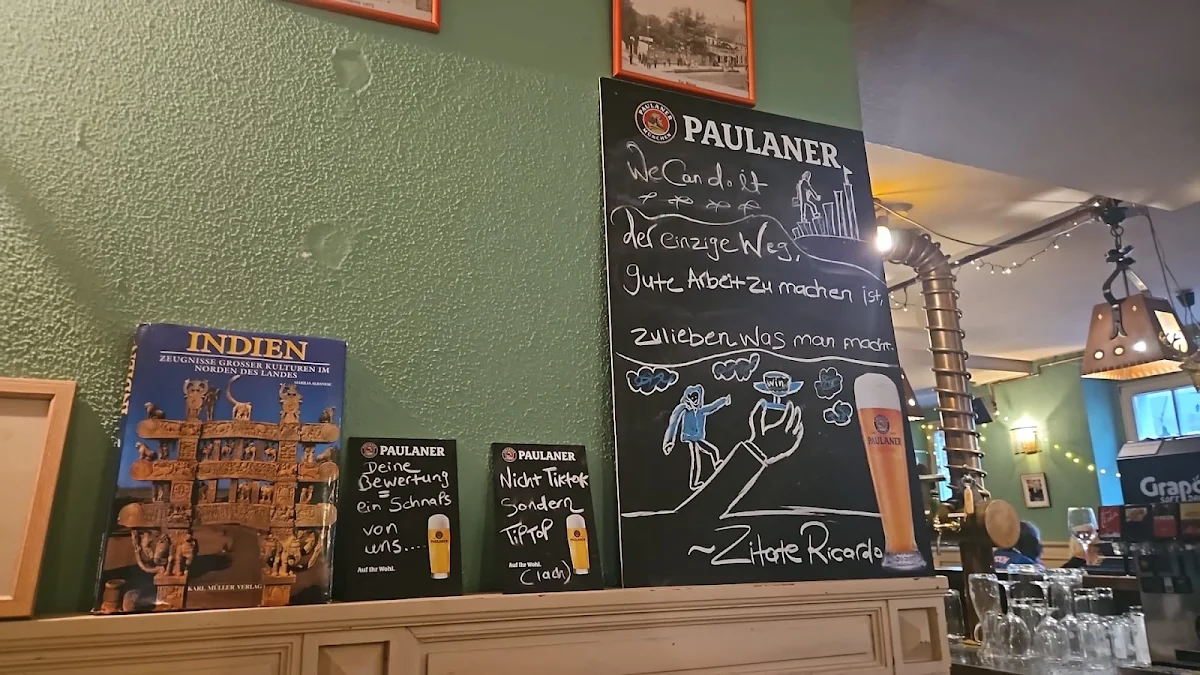 INDIEN
ZEUGNISSE GROSSER KULTUREN IM
NORDEN DES LANDES
MARILIA ALBANESE
INDIEN
KARL MÜLLER VERLAG
PAULANER
Deine
Bewertung
=
ein Schnaps
von
uns....
PAULANER
Auf Ihr Wohl.
PAULANER
Nicht Tiktok
Sondern
TipTop
PAULANER
Auf Ihr Wohl.
(lach)
PAULANER
MÜNCHEN
PAULANER
We Can do it
der einzige Weg,
gute Arbeit zu machen ist,
zulieben was man macht.
win
PAULANER
~Zitate Ricardo